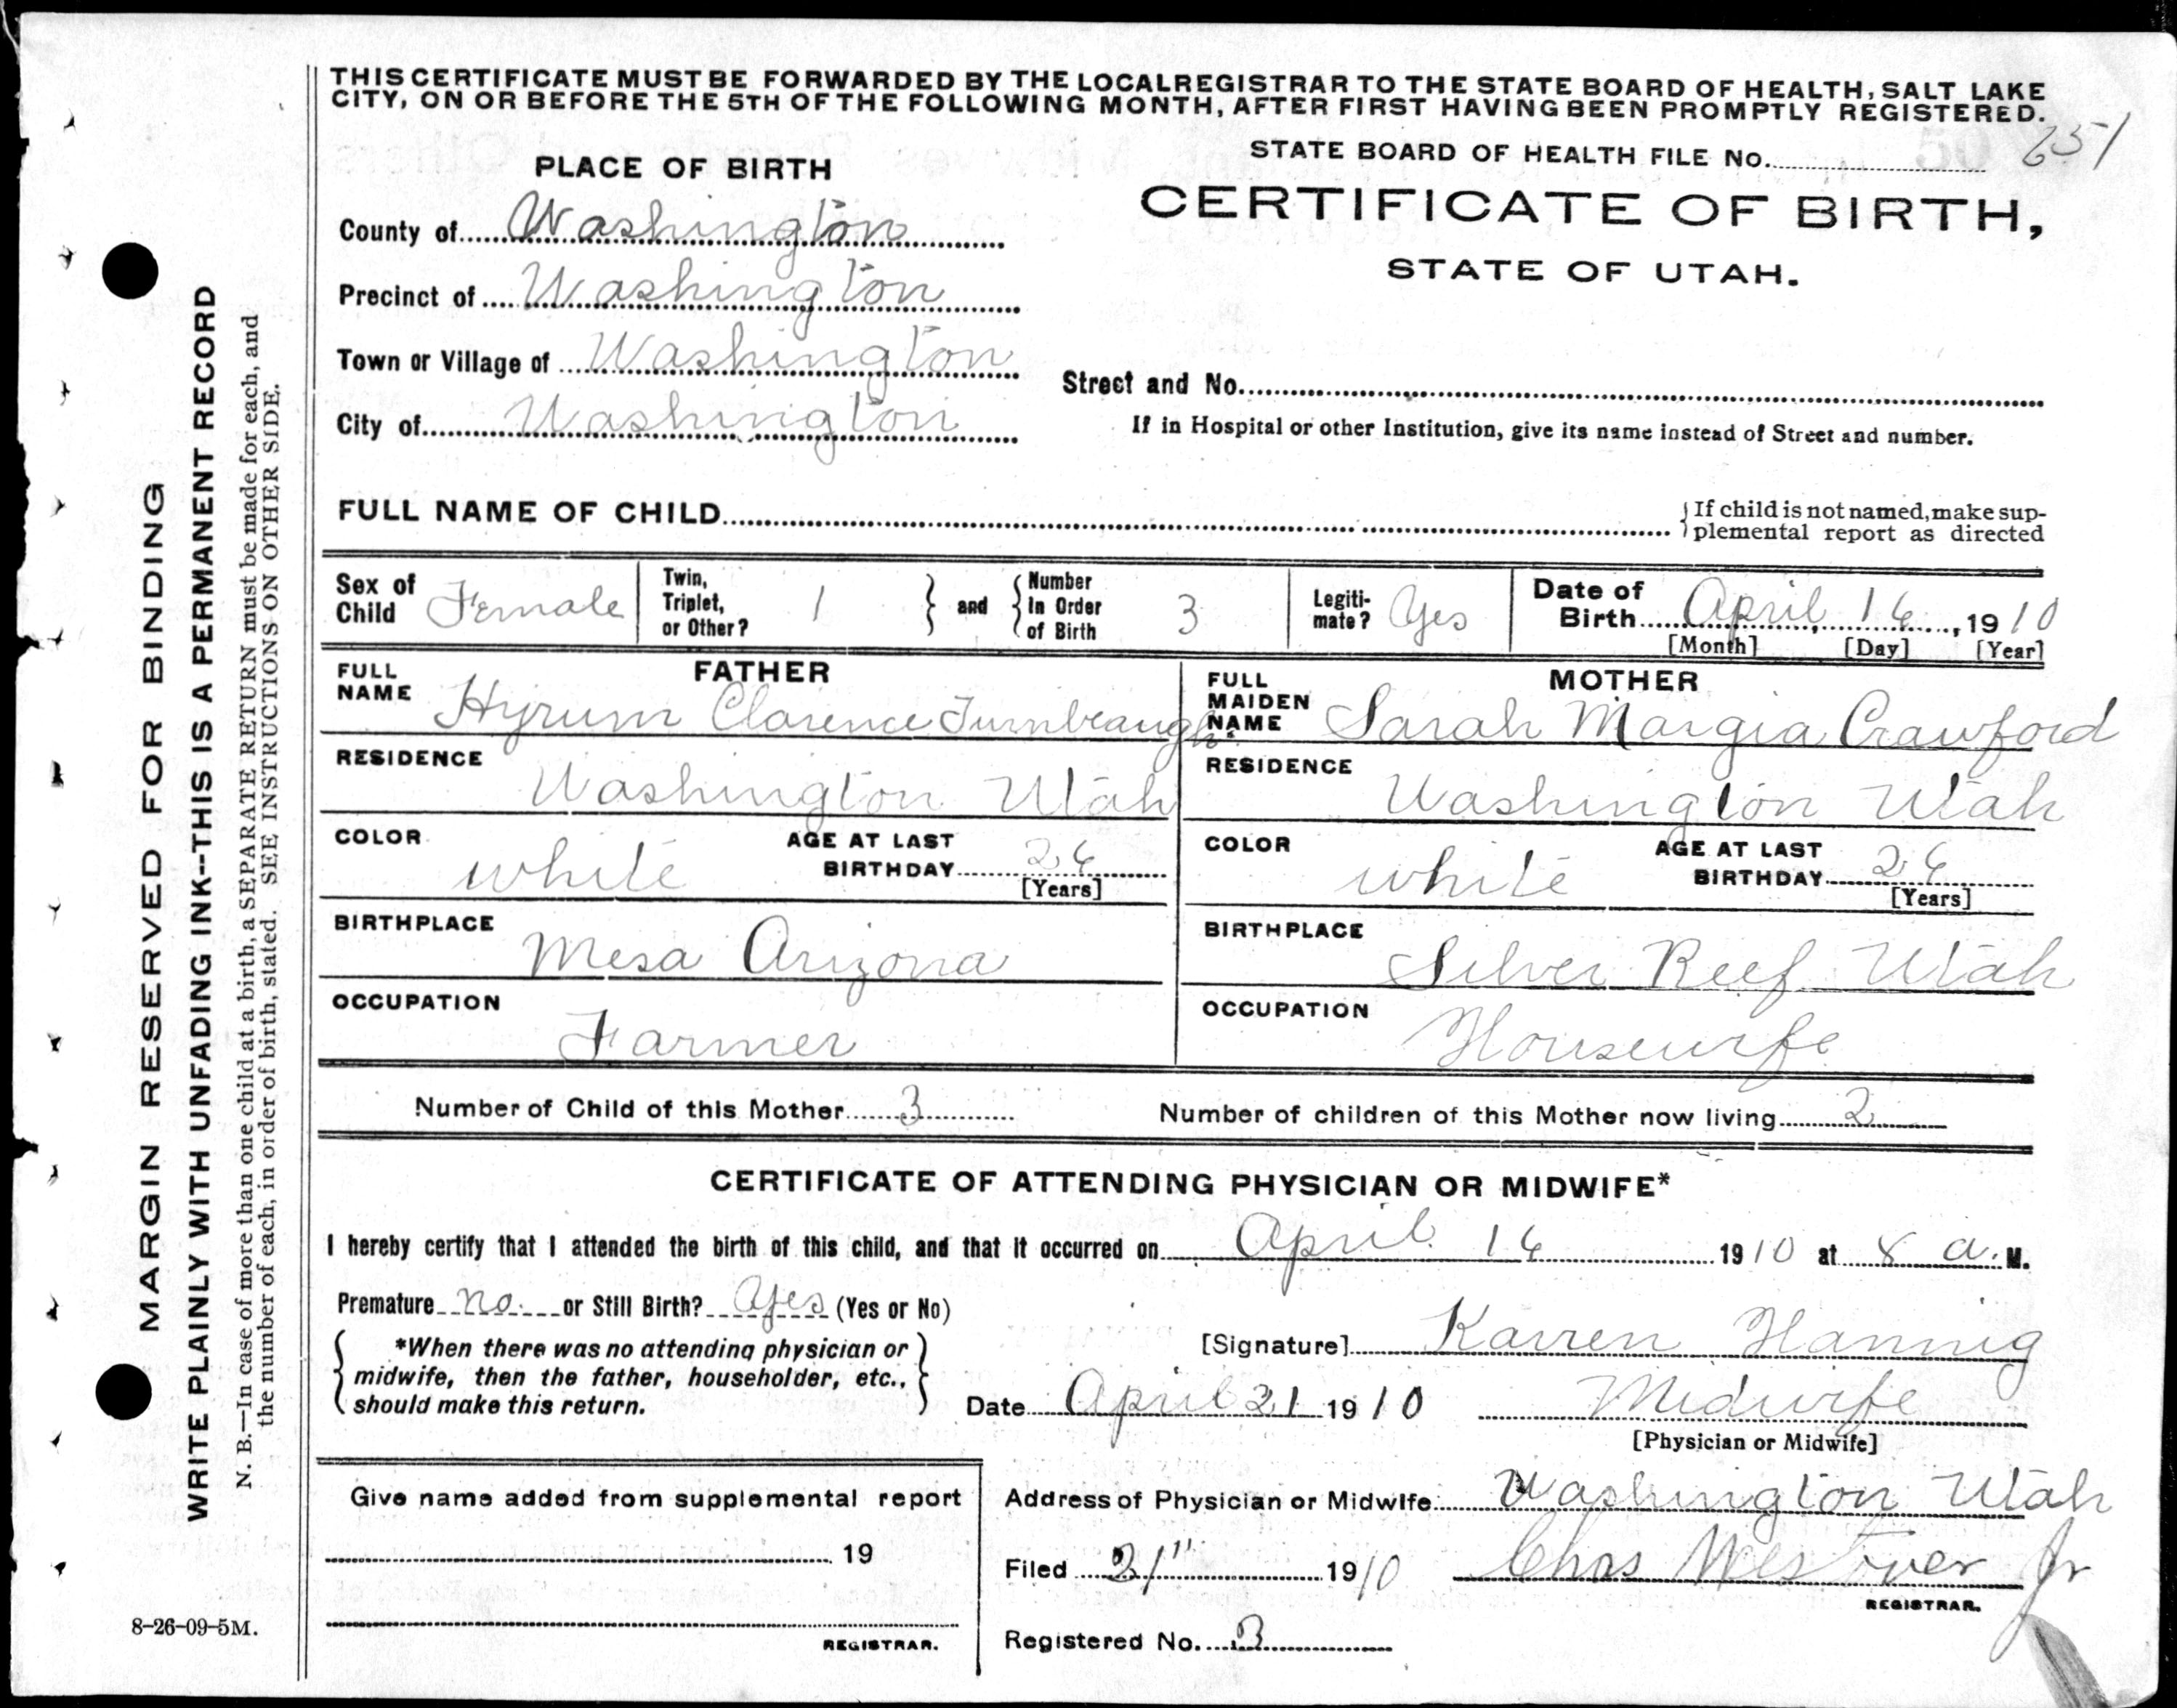 THIS CERTIFICATE MUST BE FORWARDED BY THE LOCAL REGISTRAR TO THE STATE BOARD OF HEALTH, SALT LAKE
CITY, ON OR BEFORE THE 5TH OF THE FOLLOWING MONTH, AFTER FIRST HAVING BEEN PROMPTLY REGISTERED.
STATE BOARD OF HEALTH FILE No. 651
PLACE OF BIRTH
CERTIFICATE OF BIRTH,
STATE OF UTAH.
County of Washington
Precinct of Washington
Town or Village of Washington
Street and No.
City of Washington
If in Hospital or other Institution, give its name instead of Street and number.
FULL NAME OF CHILD
If child is not named, make sup-
plemental report as directed
Sex of Child Female
Twin, Triplet, or Other? 1 and Number In Order of Birth 3
Legiti-mate? Yes
Date of Birth April 16, 1910
[Month] [Day] [Year]
FATHER
FULL NAME Hyrum Clarence Turnbeaugh
RESIDENCE Washington Utah
COLOR white AGE AT LAST BIRTHDAY 26
[Years]
BIRTHPLACE Mesa Arizona
OCCUPATION Farmer
MOTHER
FULL MAIDEN NAME Sarah Margia Crawford
RESIDENCE Washington Utah
COLOR white AGE AT LAST BIRTHDAY 26
[Years]
BIRTHPLACE Silver Reef Utah
OCCUPATION Housewife
Number of Child of this Mother 3 Number of children of this Mother now living 2
CERTIFICATE OF ATTENDING PHYSICIAN OR MIDWIFE*
I hereby certify that I attended the birth of this child, and that it occurred on April 16 1910 at 8 a. M.
Premature no. or Still Birth? Yes (Yes or No)
*When there was no attending physician or
midwife, then the father, householder, etc.,
should make this return.
[Signature] Karren Hannig
Date April 21 1910 Midwife
[Physician or Midwife]
Give name added from supplemental report
19
REGISTRAR.
Address of Physician or Midwife Washington Utah
Filed 21" 1910 Chas Westover Jr
REGISTRAR.
Registered No. 3
8-26-09-5M.
MARGIN RESERVED FOR BINDING
WRITE PLAINLY WITH UNFADING INK--THIS IS A PERMANENT RECORD
N. B.—In case of more than one child at a birth, a SEPARATE RETURN must be made for each, and
the number of each, in order of birth, stated. SEE INSTRUCTIONS ON OTHER SIDE.